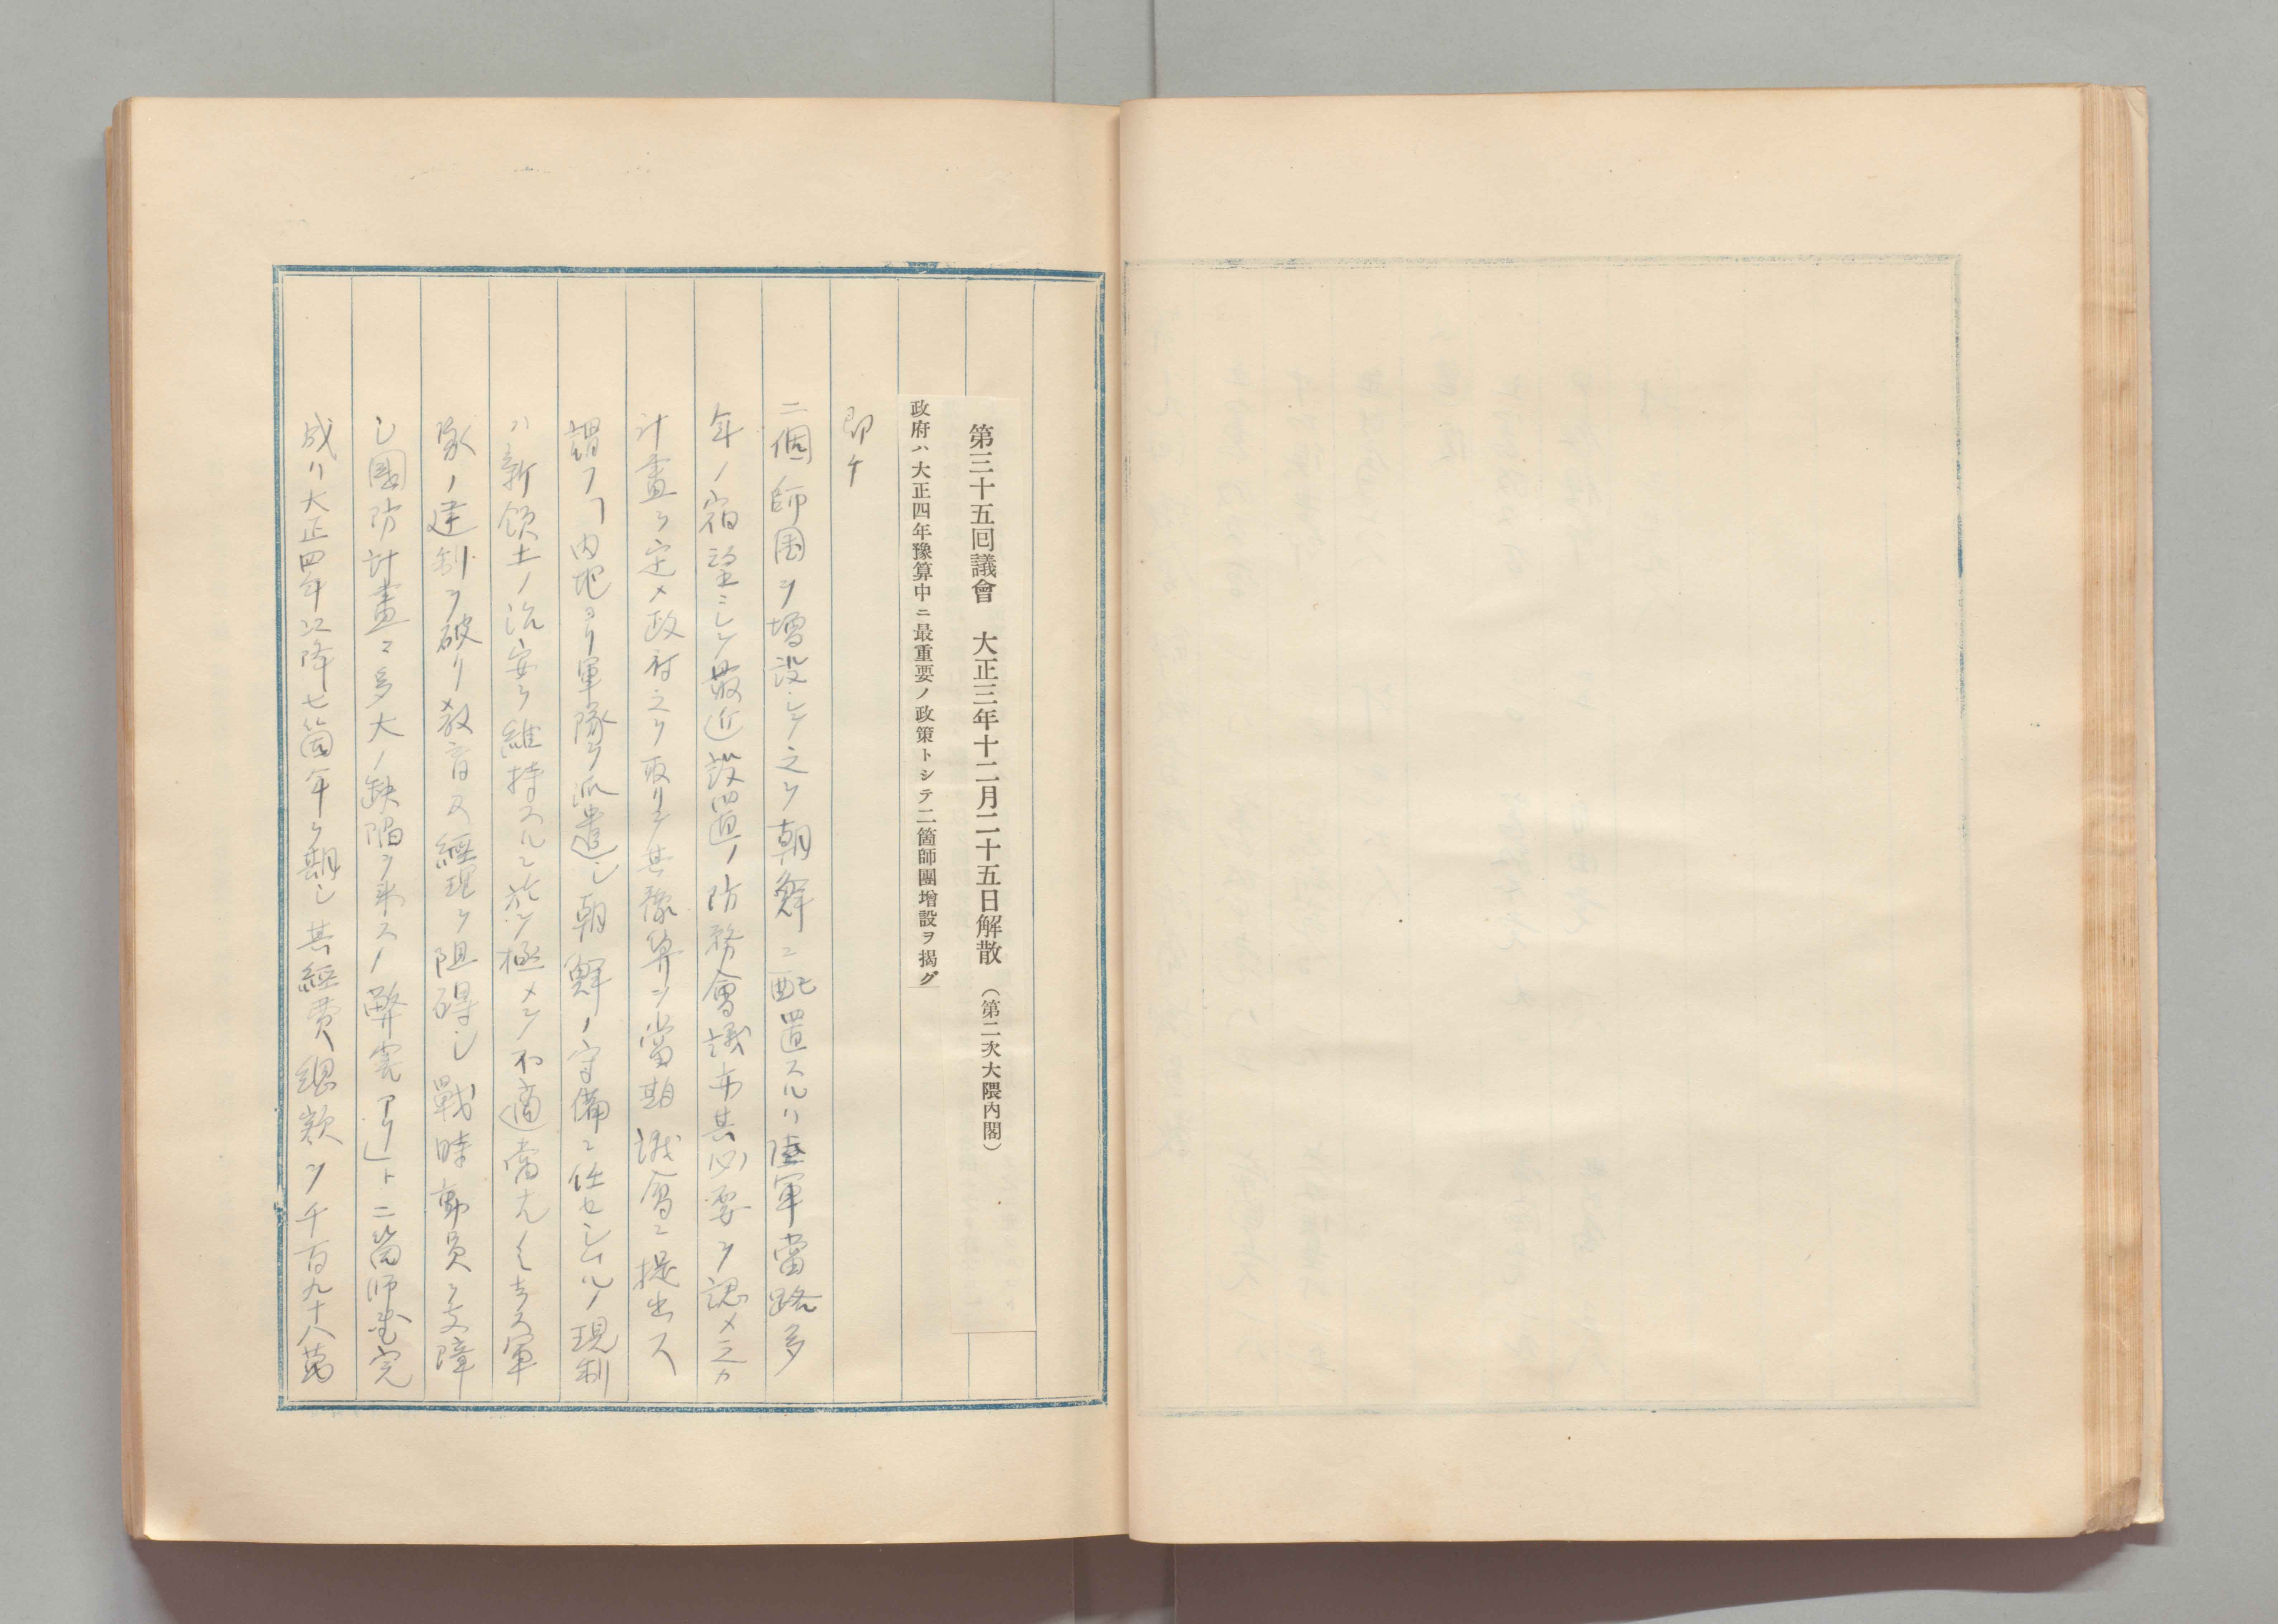 第三十五囘議會 大正三年十二月二十五日解散（第二次大隈內閣）
政府ハ大正四年豫算中ニ最重要ノ政策トシテ二箇師團增設ヲ揭グ
即チ
二個師團ヲ增設シテ之ヲ朝鮮ニ配置スルハ陸軍當路多
年ノ宿望ニシテ最近設置ノ防務會議亦其必要ヲ認メ之カ
計畫ヲ定メ政府之ヲ取リテ其豫算ヲ當期議會ニ提出ス
謂フ「內地ヨリ軍隊ヲ派遣シ朝鮮ノ守備ニ任セシムルノ現制
ハ新領土ノ治安ヲ維持スルニ於テ極メテ不適當ナル
隊ノ建制ヲ破リ敎育及經理ヲ阻碍シ戰時動員ヲ支障
シ國防計畫ニ多大ノ缺陷ヲ來スノ弊害アリ」ト二箇師 完
成ハ大正四年以降七箇年ヲ期シ其經費總額ヲ千百九十八萬